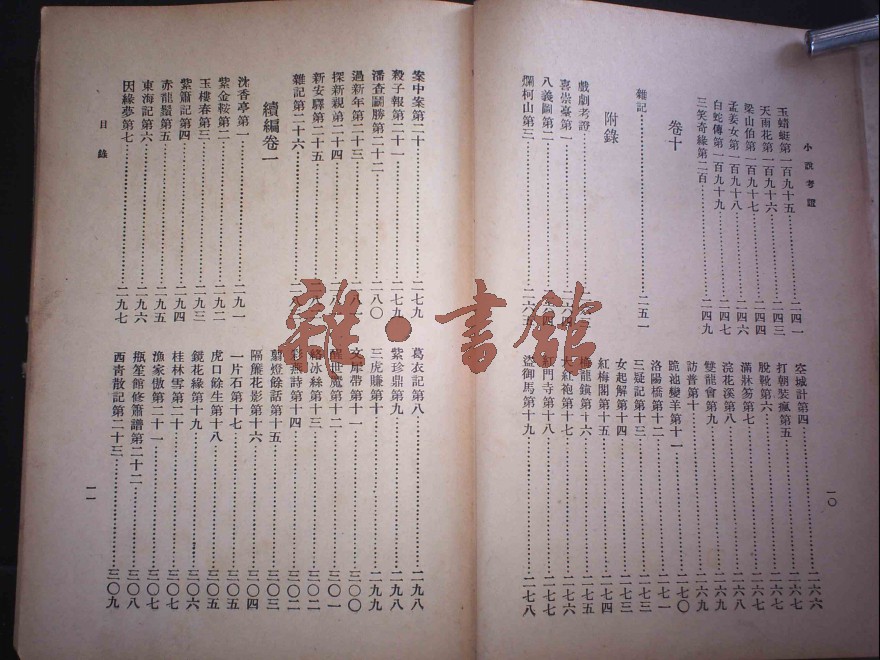 小說考證
玉蜻蜓第一百九十五……二四一
天雨花第一百九十六……二四三
梁山伯第一百九十七……二四四
孟姜女第一百九十八……二四六
白蛇傳第一百九十九……二四七
三笑奇緣第二百……二四九
卷十
雜記……二五一
附錄
戲劇考證
喜崇臺第一
八義圖第二
爛柯山第三
空城計第四……二六六
打朝裝瘋第五……二六七
脫靴第六……二六七
滿牀笏第七……二六八
浣花溪第八……二六八
雙龍會第九……二六九
訪普第十……二六九
跪池變羊第十一……二七〇
洛陽橋第十二……二七一
三疑記第十三……二七三
女起解第十四……二七三
紅梅閣第十五……二七四
梅龍鎮第十六……二七五
大紅袍第十七……二七六
虹門寺第十八……二七七
盜御馬第十九……二七八
一〇
案中案第二十……二七九
殺子報第二十一……二七九
潘查鬭勝第二十二……二八〇
過新年第二十三
探新親第二十四
新安驛第二十五
雜記第二十六
續編卷一
沈香亭第一……二九一
紫金鞍第二……二九二
玉樓春第三……二九三
紫簫記第四……二九四
赤龍鬚第五……二九五
東海記第六……二九六
因緣夢第七……二九七
葛衣記第八……二九八
紫珍鼎第九……二九八
三虎賺第十……二九九
文犀帶第十一……三〇〇
醒世魔第十二……三〇一
絡冰絲第十三……三〇二
彩燕詩第十四……三〇二
翦燈餘話第十五……三〇三
隔簾花影第十六……三〇四
一片石第十七……三〇五
虎口餘生第十八……三〇五
鏡花緣第十九……三〇六
桂林雪第二十……三〇七
漁家傲第二十一……三〇七
瓶笙館修簫譜第二十二……三〇八
西青散記第二十三……三〇九
目錄
一一
雜·書館